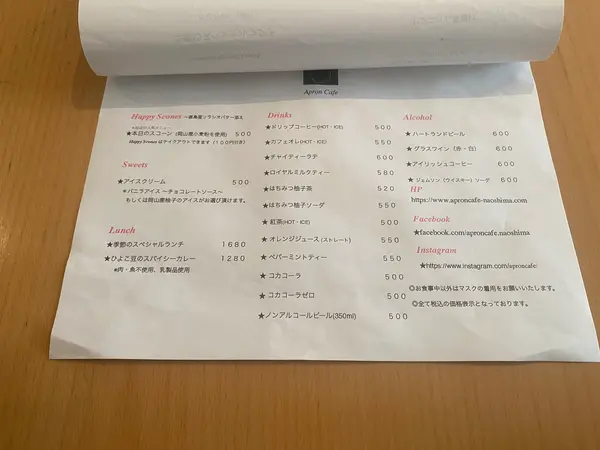 Apron Cafe
Happy Scones ～鹿島産ソランボバター添え
★本日のスコーン (岡山産小麦粉を使用) 500
Happy Sconesはテイクアウトできます (100円引き)
Sweets
★アイスクリーム 500
＊バニラアイス ～チョコレートソース～
もしくは岡山産柚子のアイスがお選び頂けます。
Lunch
★季節のスペシャルランチ 1680
★ひよこ豆のスパイシーカレー 1280
＊肉・魚不使用、乳製品使用
Drinks
★ドリップコーヒー(HOT・ICE) 500
★カフェオレ(HOT・ICE) 550
★チャイティーラテ 600
★ロイヤルミルクティー 580
★はちみつ柚子茶 520
★はちみつ柚子ソーダ 550
★紅茶(HOT・ICE) 500
★オレンジジュース (ストレート) 550
★ペパーミントティー 550
★コカコーラ 500
★コカコーラゼロ 500
★ノンアルコールビール(350ml) 500
Alcohol
★ハートランドビール 600
★グラスワイン（赤・白） 600
★アイリッシュコーヒー 600
★ジェムソン（ウイスキー）ソーダ 600
HP
https://www.aproncafe-naoshima.com
Facebook
★facebook.com/aproncafe.naoshima
Instagram
★https://www.instagram.com/aproncafe/
◎お食事中以外はマスクの着用をお願いいたします。
◎全て税込の価格表示となっております。